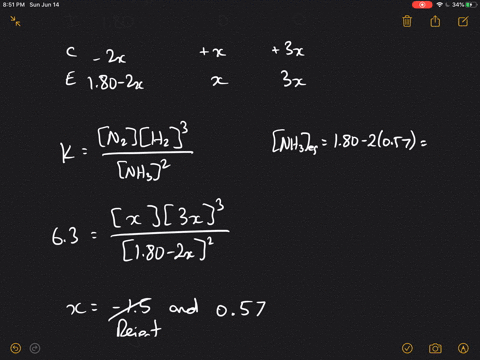 8:51 PM Sun Jun 14
34%
1.80
C -2x +x +3x
E 1.80-2x x 3x
K = [N₂][H₂]³ / [NH₃]²
[NH₃]eq = 1.80-2(0.57) =
6.3 = [x][3x]³ / [1.80-2x]²
x = -1.5 and 0.57
Reject